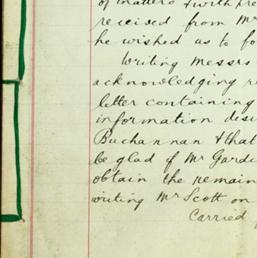 of matters & with pre
received from Mr
he wished us to fo
Writing Messrs
acknowledging r
letter containing
information desi
Buchannan & that
be glad if Mr Gardi
obtain the remain
writing Mr Scott on
Carried